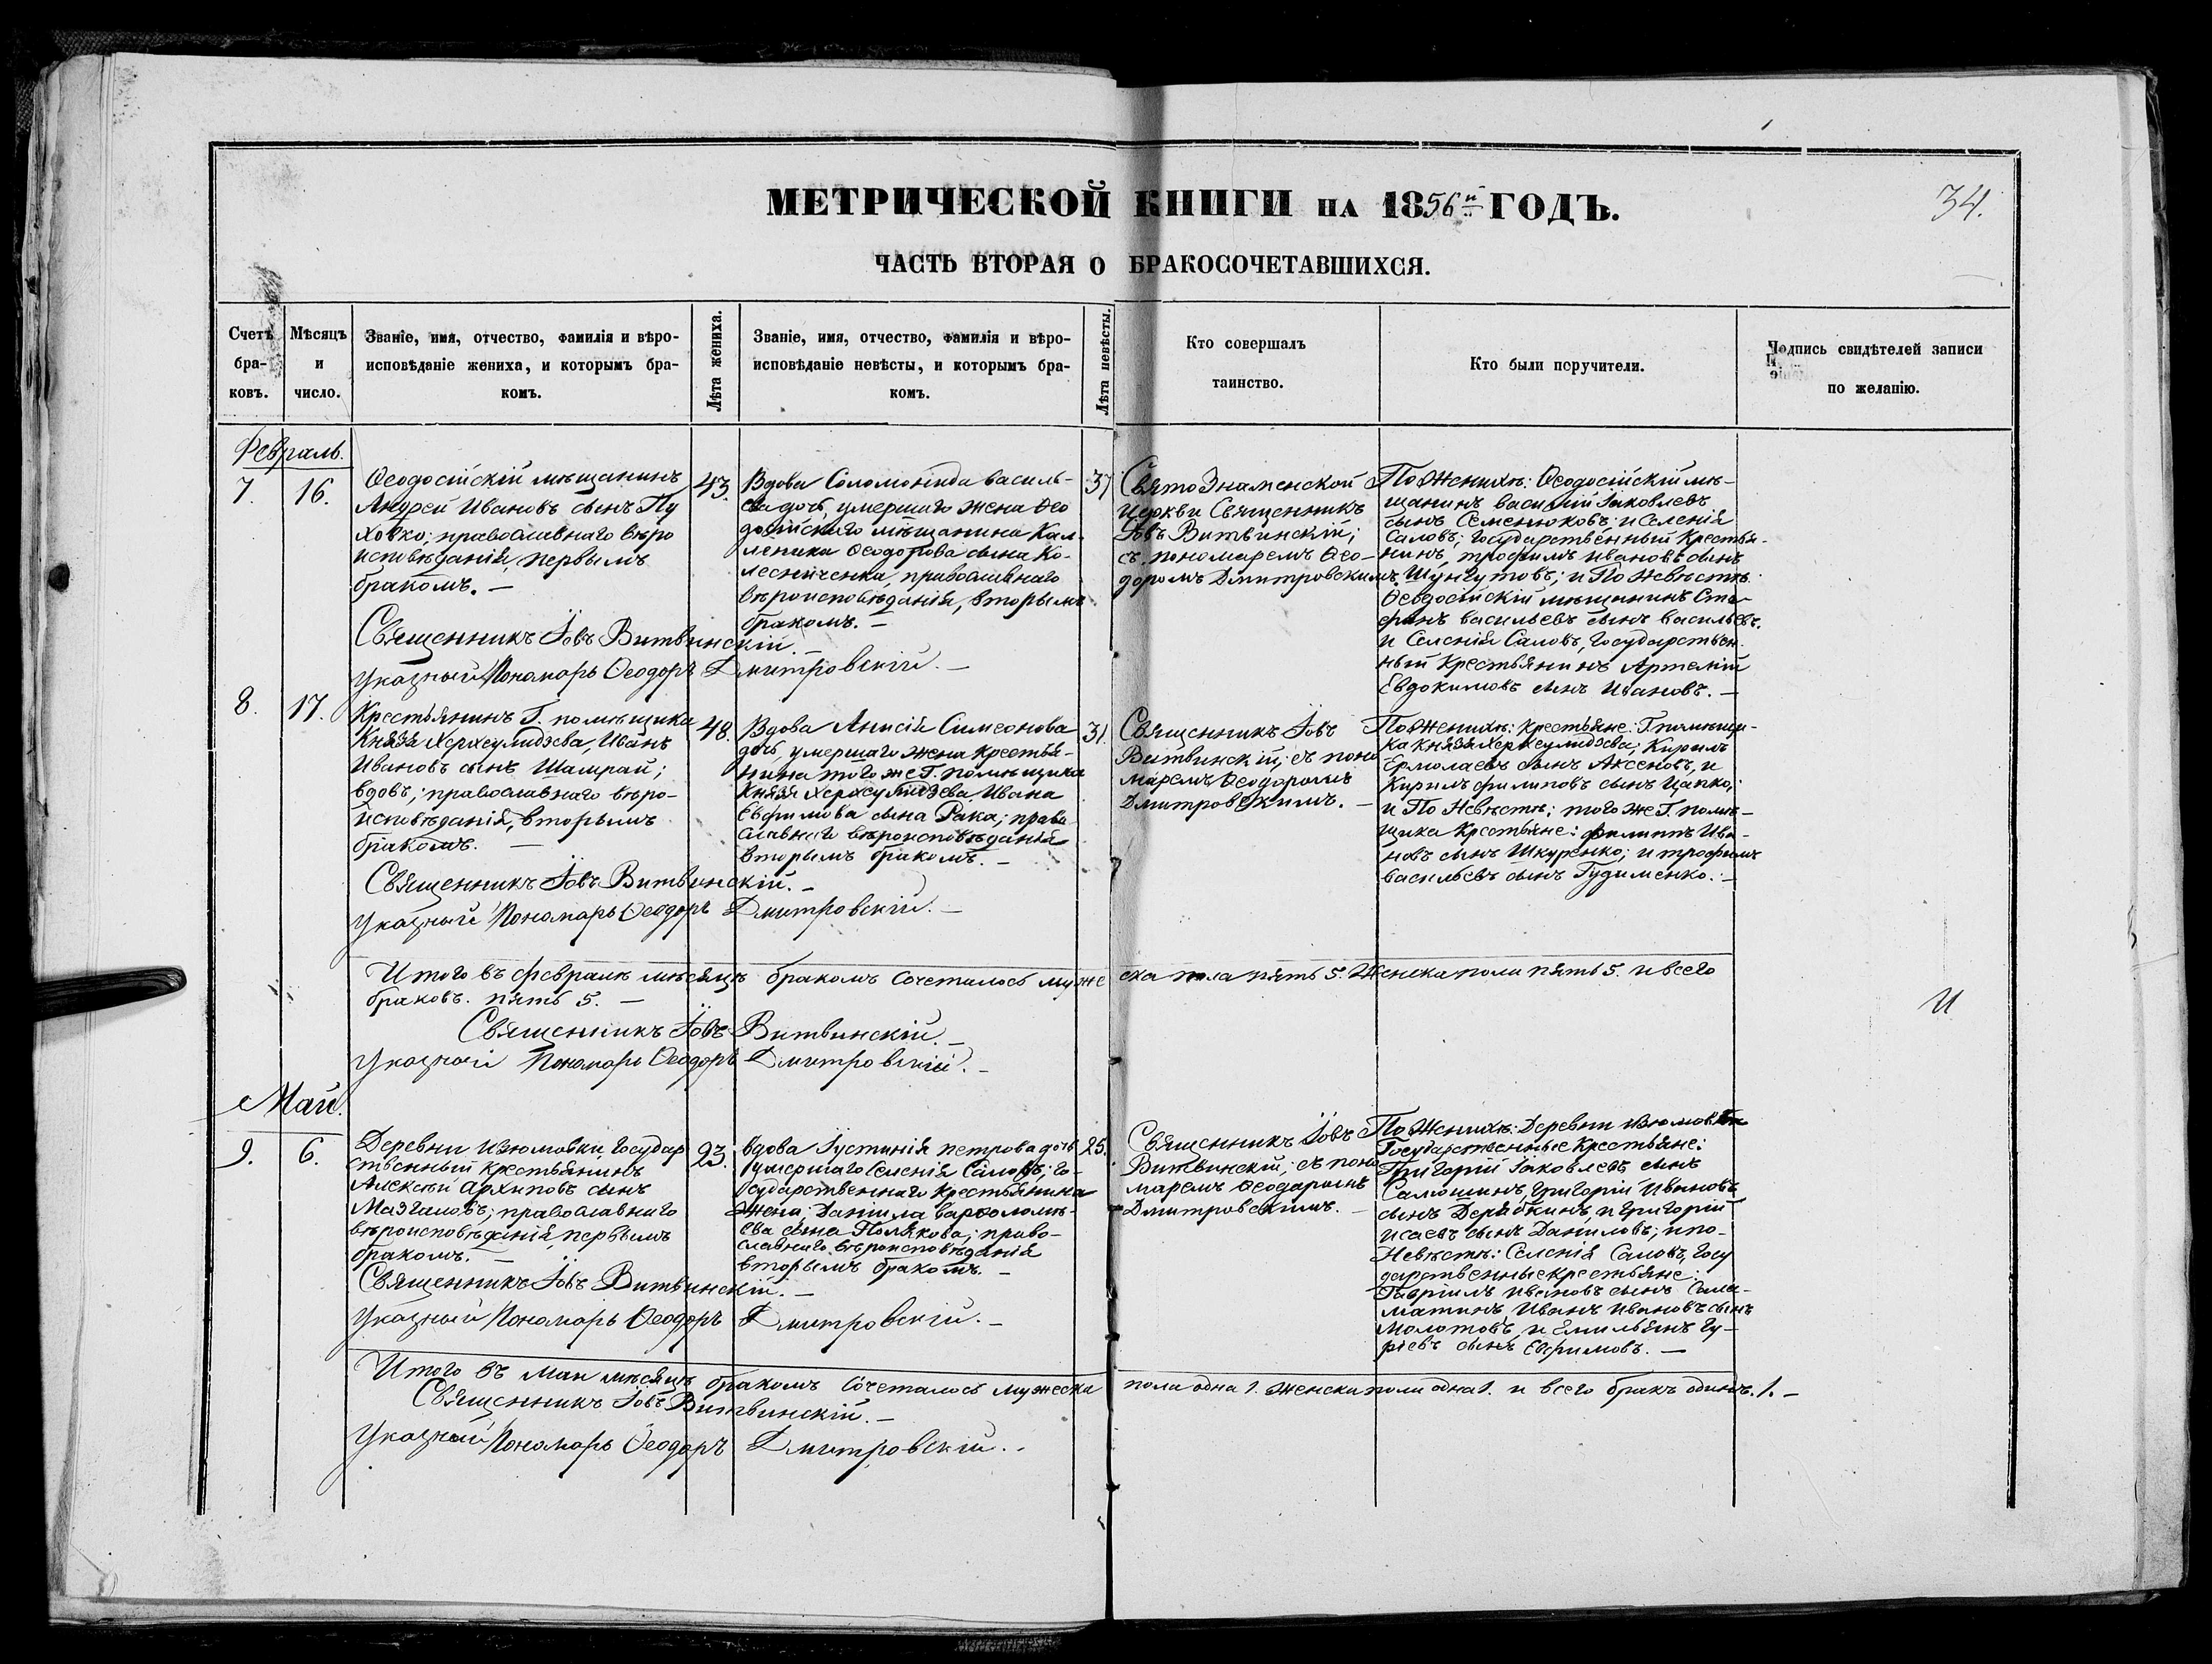 МЕТРИЧЕСКОЙ КНИГИ НА 1856й ГОДЪ.
34.
ЧАСТЬ ВТОРАЯ О БРАКОСОЧЕТАВШИХСЯ.
Счетъ бра-ковъ.
Мѣсяцъ и число.
Званіе, имя, отчество, фамилія и вѣро-
исповѣданіе жениха, и которымъ бра-
комъ.
Лѣта жениха.
Званіе, имя, отчество, фамилія и вѣро-
исповѣданіе невѣсты, и которымъ бра-
комъ.
Лѣта невѣсты.
Кто совершалъ
таинство.
Кто были поручители.
Подпись свидѣтелей записи
по желанію.
Февраль.
7.
16.
Ѳеодосійскій мѣщанинъ
Андрей Ивановъ сынъ Пу
ховко; православнаго вѣро
исповѣданія, первымъ
бракомъ. —
43.
Вдова Соломонида василь-
ева дочь, умершаго жена Ѳео
досійскаго мѣщанина Кал-
леника Ѳеодорова сына Ко-
лесниченка, православнаго
вѣроисповѣданія, вторымъ
бракомъ. —
37
Свято Знаменской
Церкви Священникъ
Іовъ Витвинскій;
съ пономаремъ Ѳео-
доромъ Дмитровскимъ.
По Женихѣ: Ѳеодосійскій мѣ-
щанинъ василій Іаковлевъ
сынъ Семенюковъ; и Селенія
Саловъ; Государственный Крестья-
нинъ, трофимъ ивановъ сынъ
Шунгутовъ; и По Невѣстѣ
Ѳеодосійскій мѣщанинъ Сте-
фанъ васильевъ сынъ васильевъ.
и Селенія Саловъ, Государствен-
ный Крестьянинъ Артемій
Евдокимовъ сынъ Ивановъ. —
Священникъ Іовъ Витвинскій. —
Указный Пономарь Ѳеодоръ Дмитровскій. —
8.
17.
Крестьянинъ Г. помѣщика
Князя Херхеулидзева, Иванъ
Ивановъ сынъ Шамрай;
вдовъ; православнаго вѣро-
исповѣданія, вторымъ
бракомъ. —
48.
Вдова Анисія Симеонова
дочь, умершаго жена крестья-
нина того же Г. помѣщика
Князя Херхеулидзева Ивана
Евфимова сына Рака; право
славнаго вѣроисповѣданія
вторымъ бракомъ. —
31.
Священникъ Іовъ
Витвинскій; съ поно
маремъ Ѳеодоромъ
Дмитровскимъ. —
По Женихѣ: Крестьяне: Г. помѣщи-
ка князя Херхеулидзева; Кирилъ
Ермолаевъ сынъ Аксеновъ, и
Кирилъ филиповъ сынъ Цапко;
и По Невѣстѣ: того же Г. помѣ-
щика Крестьяне: филиппъ Ива-
новъ сынъ Шкуренко; и трофимъ
васильевъ сынъ Гудименко. —
Священникъ Іовъ Витвинскій. —
Указный Пономарь Ѳеодоръ Дмитровскій. —
Итого въ февралѣ мѣсяцѣ бракомъ сочеталось муже ска пола пять 5. Женска пола пять 5. и всего
браковъ. пять 5. —
И
Священникъ Іовъ Витвинскій. —
Указный Пономарь Ѳеодоръ Дмитровскій. —
Май.
9.
6.
Деревни Изюмовки, Государ
ственный крестьянинъ
Алексѣй Архиповъ сынъ
Мазгановъ; православнаго
вѣроисповѣданія, первымъ
бракомъ. —
23.
вдова Іустинія петрова дочь
умершаго Селенія Саловъ; Го-
сударственнаго Крестьянина
жена; Данила варѳоломѣ-
ева сына Полякова; право-
славнаго вѣроисповѣданія
вторымъ бракомъ. —
25.
Священникъ Іовъ
Витвинскій; съ поно
маремъ Ѳеодоромъ
Дмитровскимъ. —
По Женихѣ: Деревни Изюмовки
Государственные Крестьяне:
Григорій Іаковлевъ сынъ
Самошинъ, Григорій Ивановъ
сынъ Дерябкинъ, и Григорій
исаевъ сынъ Даниловъ; и по-
Невѣстѣ: Селенія Саловъ, Госу
дарственные крестьяне:
Гавріилъ ивановъ сынъ Сала-
матинъ Иванъ Ивановъ сынъ
Молотовъ, и Емильянъ Гу-
ріевъ сынъ Ефимовъ. —
Священникъ Іовъ Витвинскій. —
Указный Пономарь Ѳеодоръ Дмитровскій. —
Итого въ маи мѣсяцѣ бракомъ сочеталось мужеска пола одна 1. женска пола одна 1. и всего бракъ одинъ. 1. —
Священникъ Іовъ Витвинскій. —
Указный Пономарь Ѳеодоръ Дмитровскій. —